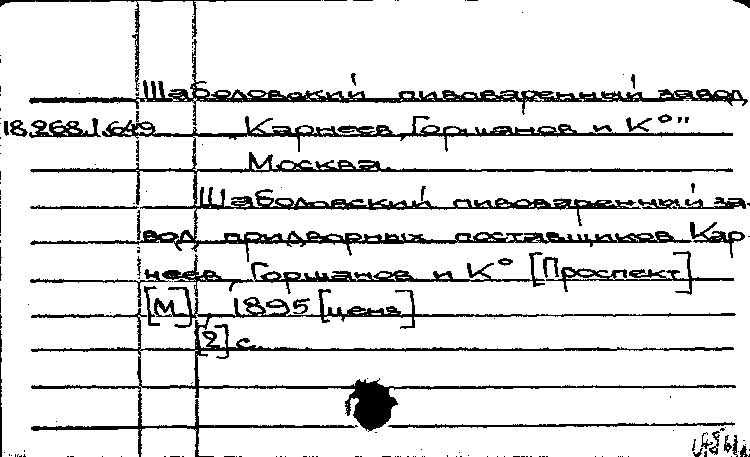 Шаболовский пивоваренный завод
18.268.1.649 Карнеев, Горшанов и К°"
Москва.
Шаболовский пивоваренный за-
вод придворных поставщиков Кар-
неев, Горшанов и К° [Проспект]
[М.], 1895 [ценз.]
[2] с.